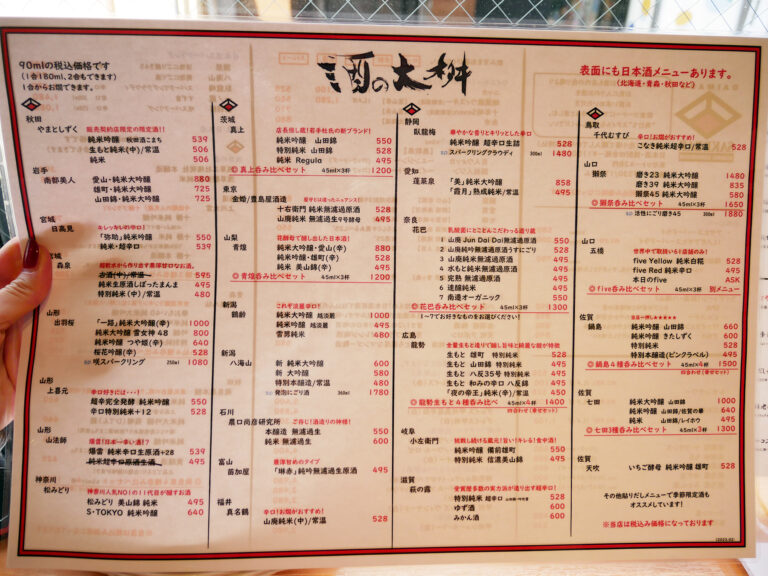 90mlの税込価格です
(1合180ml、2合もできます)
1合からお燗できます。
酒の大桝
表面にも日本酒メニューあります。
(北海道・青森・秋田など)
秋田
やまとしずく 販売契約店限定の限定酒!!
純米吟醸 秋田酒こまち 539
生もと純米(中)/常温 506
純米 506
岩手
南部美人 愛山・純米大吟醸 880
雄町・純米大吟醸 725
山田錦・純米大吟醸 725
宮城
日高見 えっ
「弥助」純米吟醸 550
純米・超辛口 539
宮城
森泉
古酒(中)/常温 595
純米生原酒しぼったまんま 495
特別純米(中)/常温 480
山形
出羽桜 「一路」純米大吟醸(辛) 1000
純米大吟醸 雪女神 48 800
純米吟醸 つや姫(中) 640
桜花吟醸(辛) 528
咲スパークリング 250ml 1080
山形
上喜元 辛口好きには…!
超辛完全発酵 純米吟醸 550
辛口特別純米+12 528
山形
山法師 爆雷!日本一辛い酒!?
爆雷 純米辛口生原酒+28 539
純米超辛口原酒生酒 495
神奈川
松みどり 神奈川人気NO1の11代目が醸すお酒
松みどり 美山錦 純米 495
S・TOKYO 純米吟醸 640
茨城
真上 店長推し蔵!若手杜氏の新ブランド!
純米吟醸 山田錦 550
特別純米 山田錦 528
純米 Regulo 495
◎真上呑み比べセット 45ml×3杯 1200
東京
金婚/豊島屋酒造
十右衛門 純米無濾過原酒 528
山廃純米 無濾過 495
山梨
青煌 花酵母で醸し出した日本酒!
純米大吟醸・愛山(辛) 880
純米吟醸・雄町(中) 528
純米 美山錦(辛) 495
◎青煌呑み比べセット 45ml×3杯 1200
新潟
鶴齢 これぞ淡麗辛口!
純米大吟醸 越淡麗 1000
純米吟醸 越淡麗 495
雪男純米 480
新潟
八海山 新 純米大吟醸 600
新 大吟醸 580
特別本醸造/常温 480
発泡にごり酒 360ml 1780
石川
農口尚彦研究所 ご存じ!酒造りの神様!
本醸造 無濾過生 550
純米 無濾過生 600
富山
苗加屋 豊潤甘めのタイプ
「琳赤」純吟無濾過生原酒 495
福井
真名鶴 辛口!お燗がおすすめ!
山廃純米(中)/常温 528
静岡
臥龍梅 華やかな香りとキリッとした辛口
純米吟醸 超辛口生詰 528
スパークリングクラウディ 300ml 1480
愛知
蓬莱泉 「美」純米大吟醸 858
「霞月」熟成純米/常温 495
奈良
花巴 乳酸菌にとことんこだわってる造り蔵
1 山廃 Jun Dai Dai無濾過原酒 550
2 山廃純米吟無濾過原酒うすにごり 528
3 山廃純米無濾過原酒 495
4 水もと純米無濾過原酒 495
5 完熟 無濾過原酒 495
6 速醸純米 495
7 南遷オーガニック 550
◎花巴呑み比べセット 45ml×3杯 1300
1〜7でお好きなものをお選びください!
広島
龍勢 全量生もと造りで醸し旨味と綺麗な酸が特徴
生もと 雄町 特別純米 528
生もと 山田錦 特別純米 528
生もと 八反35号 特別純米 495
生もと 和みの辛口 八反錦 495
「夜の帝王」純米(中)/常温 450
◎龍勢生もと4種呑み比べ 45ml×4杯 1400
四合わせ(幸せセット)
岐阜
小左衛門 挑戦し続ける蔵元!旨い!キレる!食中酒!
純米吟醸 備前雄町 550
特別純米 信濃美山錦 495
滋賀
萩乃露
特別純米 超辛口 528
ゆず酒 600
みかん酒 600
鳥取
千代むすび 辛口!お燗がおすすめ!
こなき純米超辛口/常温 528
山口
獺祭 磨き23 純米大吟醸 1480
磨き39 純米大吟醸 835
獺祭45 純米大吟醸 580
◎獺祭呑み比べセット 45ml×3杯 1650
活性にごり磨き45 1880
山口
五橋 世界中で取扱い61店舗のみ!
five Yellow 純米白糀 528
five Red 純米辛口 495
本日のfive ASK
◎five呑み比べセット 45ml×3杯 別メニュー
佐賀
鍋島 当店一押し★★★★★
純米吟醸 山田錦 660
純米吟醸 きたしずく 600
特別純米 528
特別本醸造(ピンクラベル) 495
◎鍋島4種呑み比べセット 45ml×4杯 1500
四合わせ(幸せセット)
佐賀
七田 純米大吟醸 山田錦 1000
純米吟醸 山田錦/佐賀の華 640
純米 山田錦/レイホウ 495
◎七田3種呑み比べセット 45ml×3杯 1300
佐賀
天吹 いちご酵母 純米吟醸 雄町 528
その他貼りだしメニューで季節限定酒も
オススメしています!
※当店は税込み価格になっております
(2023.02)